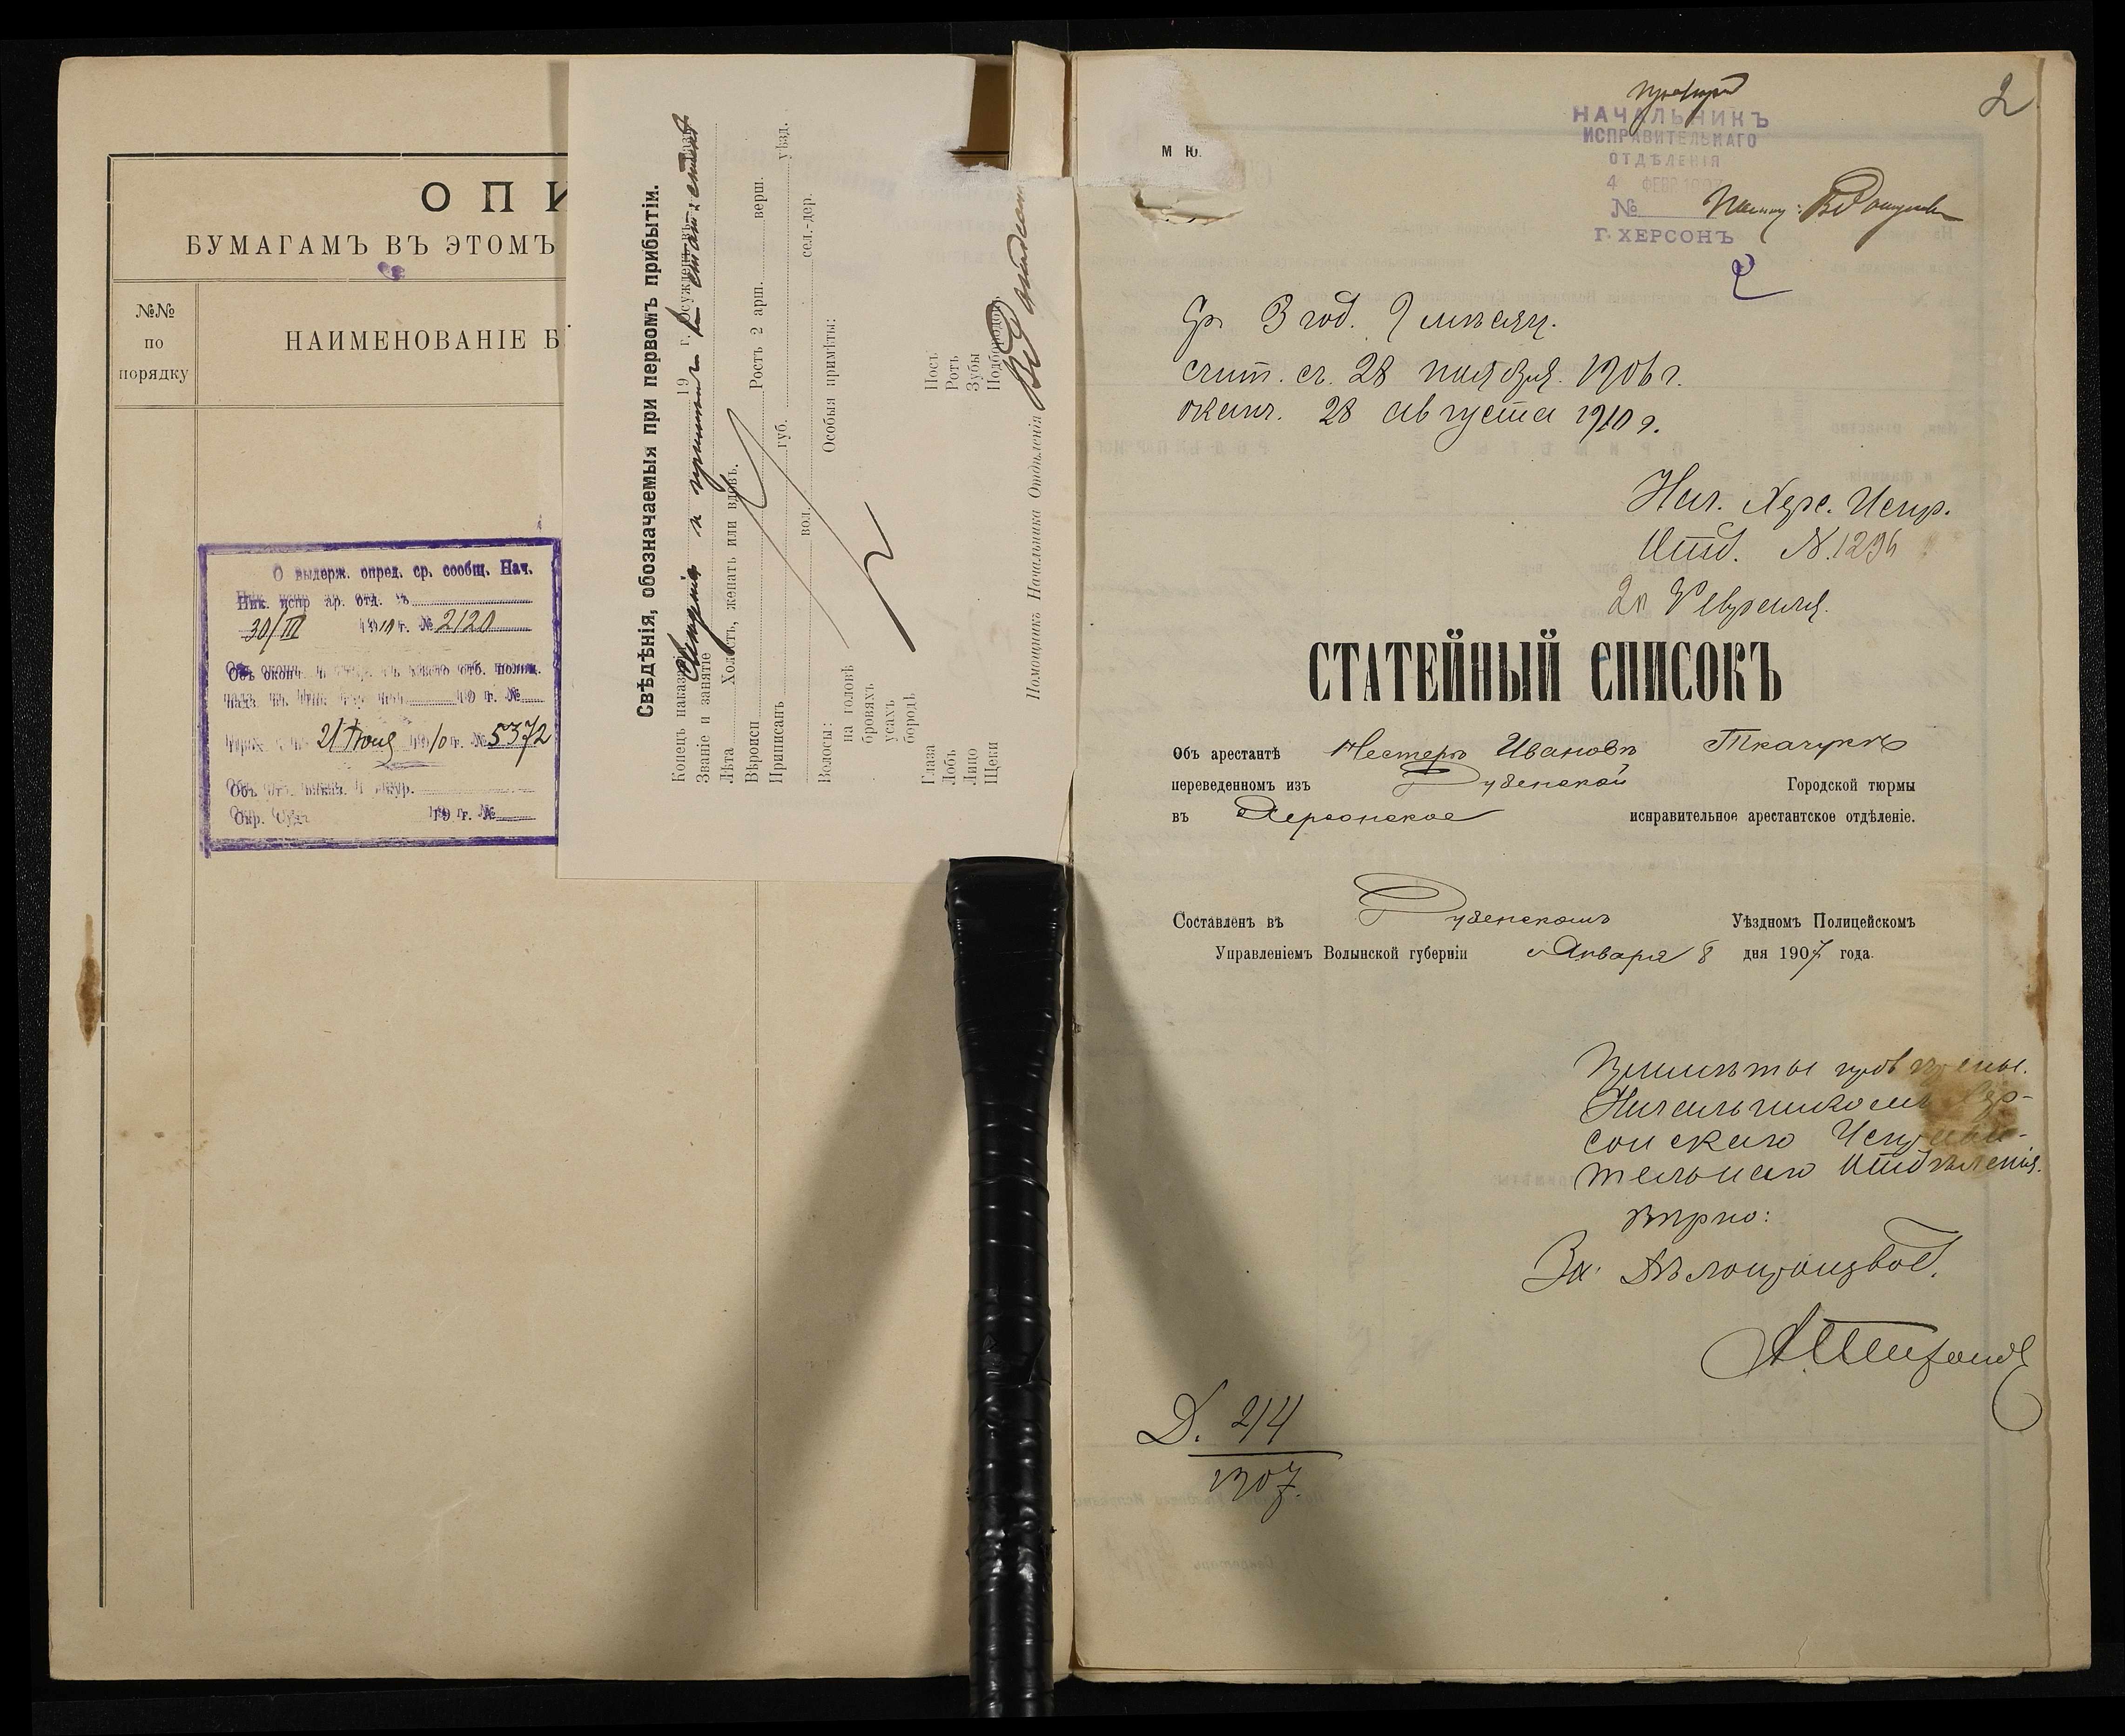 ОПИ
БУМАГАМЪ ВЪ ЭТОМЪ
№№
по
порядку
НАИМЕНОВАНІЕ Б
О выдерж. опред. ср. сообщ. Нач.
Ник. испр ар. отд. въ
30/III 1910 г. № 2120
19 г. №
21 1910 г. № 5372
Окр. Суд. 19 г. №
Свѣдѣнія, обозначаемыя при первомъ прибытіи.
Конецъ наказанія 19 г. Осужденъ въ
Званіе и занятіе
Лѣта Холостъ, женатъ или вдовъ.
Вѣроисп Ростъ 2 арш. верш.
Приписанъ губ. уѣзд.
вол. сел.-дер.
Волосы: Особыя примѣты:
на головѣ
бровяхъ
усахъ
бородѣ
Глаза Носъ
Лобъ Ротъ
Лицо Зубы
Щеки Подбородокъ
Помощникъ Начальника Отдѣленія
2
М Ю.
НАЧАЛЬНИКЪ
ИСПРАВИТЕЛЬНАГО
ОТДѢЛЕНІЯ
4 ФЕВР 1907
№
Г. ХЕРСОНЪ
Ср 3 год. 9 мѣсяц.
счит. съ 28 ноября 1906 г.
оканч. 28 августа 1910 г.
Нач. Херс. Испр.
Отд. N. 1296
20 Февраля.
СТАТЕЙНЫЙ СПИСОКЪ
Объ арестантѣ Нестеръ Ивановъ Ткачукъ
переведенномъ изъ Дубенской Городской тюрмы
въ Херсонское исправительное арестантское отдѣленіе.
Составленъ въ Дубенскомъ Уѣздномъ Полицейскомъ
Управленіемъ Волынской губерніи Января 8 дня 1907 года.
Примѣты провѣрены.
Начальникомъ Хер-
сонскаго Исправи-
тельнаго Отдѣленія.
Вѣрно:
За Дѣлопроизвод.
Д. 214
1907.